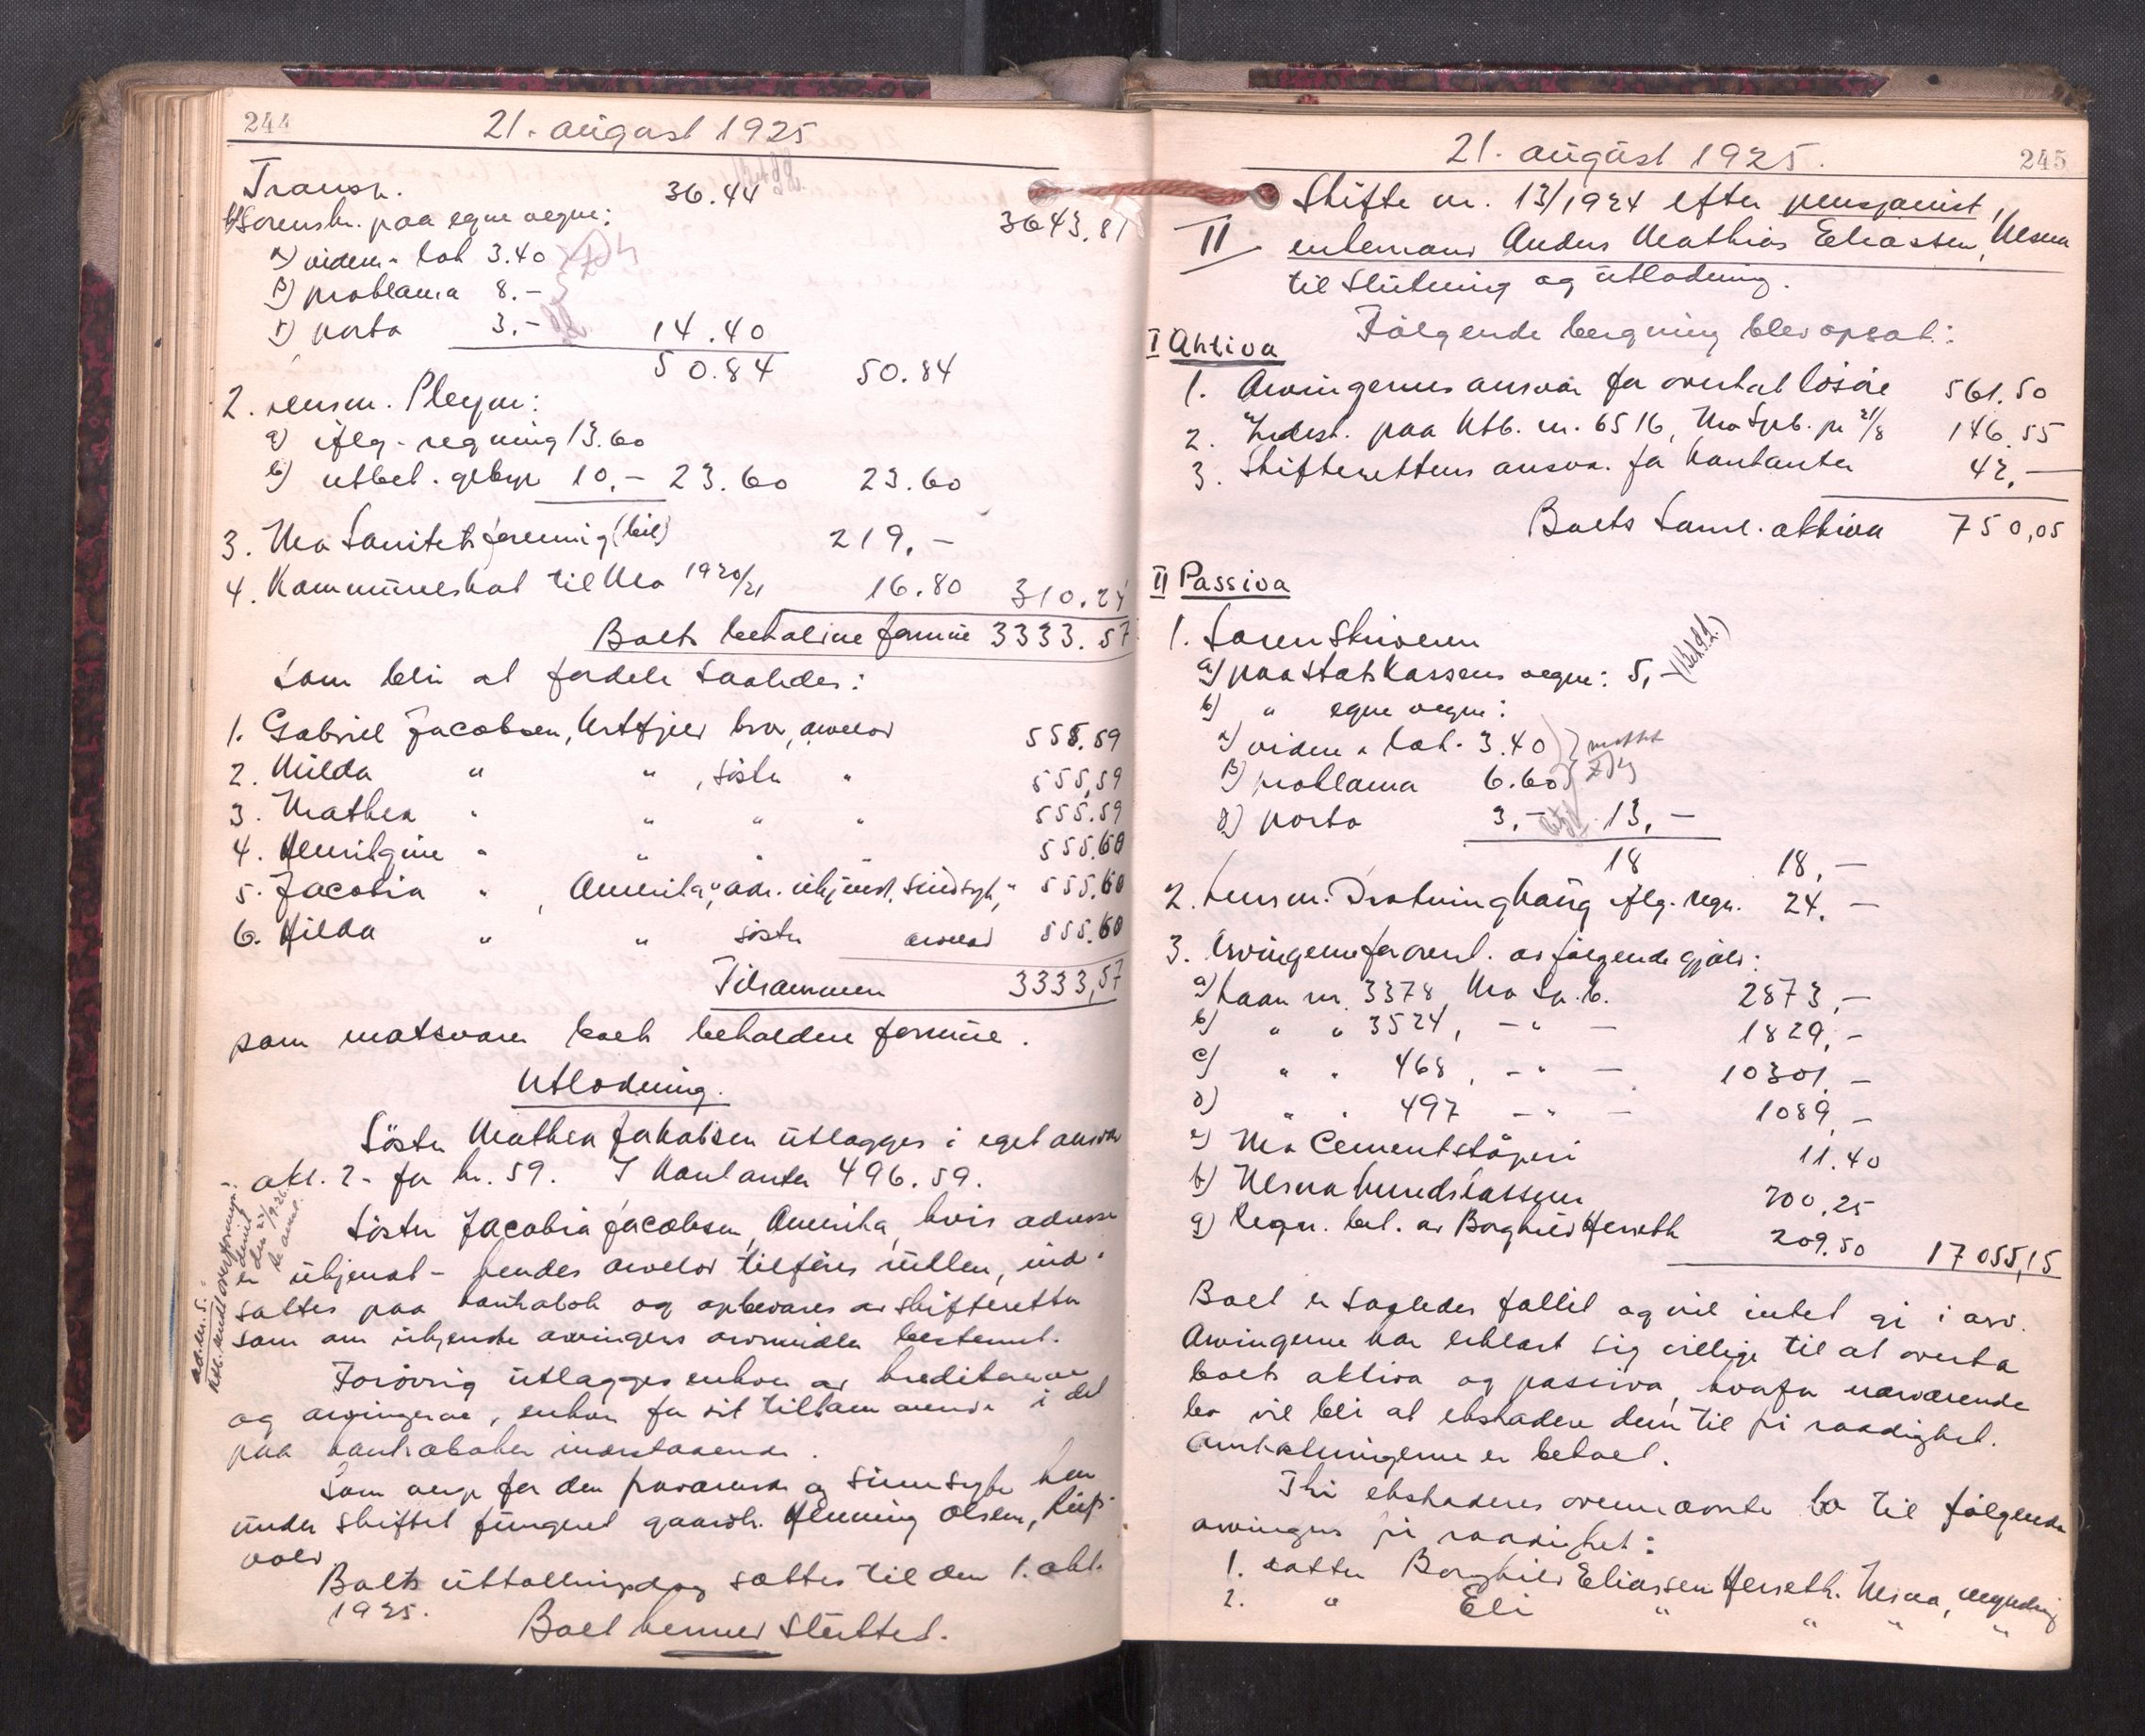 244
21. august 1925
Transp. 36.44 3643.81
b) Sorenskr. paa egne vegne:
α) videm. lab 3.40
β) proklama 8.-
γ) porto 3.- 14.40
50.84 50.84
2. lensm. Pleym:
a) iflg. regning 13.60
b) utbet. gebyr 10,- 23.60 23.60
3. Mo Sanitetsforening (bil) 219,-
4. Kommuneskat til Mo 1920/21 16.80 310.24
Boets beholdne formue 3333.57
som blir at fordele saaledes:
1. Gabriel Jacobsen, Urtfjell bror, arvelod 555.59
2. Milda " " , søster " 555,59
3. Mathea " " " " 555.59
4. Henrikgine " " " " 555.60
5. Jacobia " , Amerika, adr. ukjendt, sindsyk, " 555.60
6. Hilda " " søster arvelod 555.60
Tilsammen 3333,57
som motsvarer boets beholdne formue.
Utlodning.
Søster Mathea Jakobsen utlægges i eget ansvar
akt. 2 - for kr. 59. I kontanter 496.59.
Søster Jacobia Jacobsen, Amerika, hvis adresse
er ukjendt - hendes arvelod tilføres rullen, ind-
sættes paa bankbok og opbevares av skifteretten
som om ukjendte arvingers arvemidler bestemt.
Forøvrig utlægges enhver av kreditorerne
og arvingerne, enhver for sit tilkommende i det
paa bankboken indestaaende.
Som verge for den fraværende og sinnsyke har
under skiftet fungeret gaardbr. Henning Olsen,
Boets utlodningsdag sættes til den 1. okt.
1925.
Boet kennes sluttet.
21. august 1925.
245
II
Skifte nr. 13/1924 efter pensjonist,
enkemand Anders Mathias Eliassen, Nesna
til slutning og utlodning.
Følgende beregning blev opsat:
I Aktiva
1. Arvingernes ansvar for overtat løsøre 561.50
2. Indest. paa ktb. nr. 6516, Mo Spb. pr 21/8 146.55
3. Skifterettens ansva. for kontanter 42,-
Boets saml. aktiva 750,05
II Passiva
1. Sorenskriveren
a) paa statskassens vegne: 5,- (bet.)
b) " egne vegne:
α) videm. lab. 3.40
β) proklama 6.60
γ) porto 3,- 13,-
18 18,-
2. Lensm. Drotninghaug iflg. regn. 24.-
3. Arvingerne for overt. av følgende gjæld:
a) Laan nr. 3378, Mo Sp.b. 2873,-
b) " " 3524, -"- 1829,-
c) " " 468, -"- 10301,-
d) " " 497 -"- 1089,-
e) Mo Cementstøperi 11.40
f) Nesna kundskassen 700,25
g) Regn. bet. av Borghild Herseth 209.50 17 055,15
Boet er saaledes fallit og vil intet gi i arv.
Arvingerne har erklært sig villige til at overta
boets aktiva og passiva, hvorfor nærværende
bo vil bli at ekstradere dem til fri raadighet.
Omkostningerne er betalt.
Thi ekstraderes ovennævnte bo til følgende
arvingers fri raadighet:
1. datter Borghild Eliassen Herseth, Nesna, myndig
2. " Eli " " " "